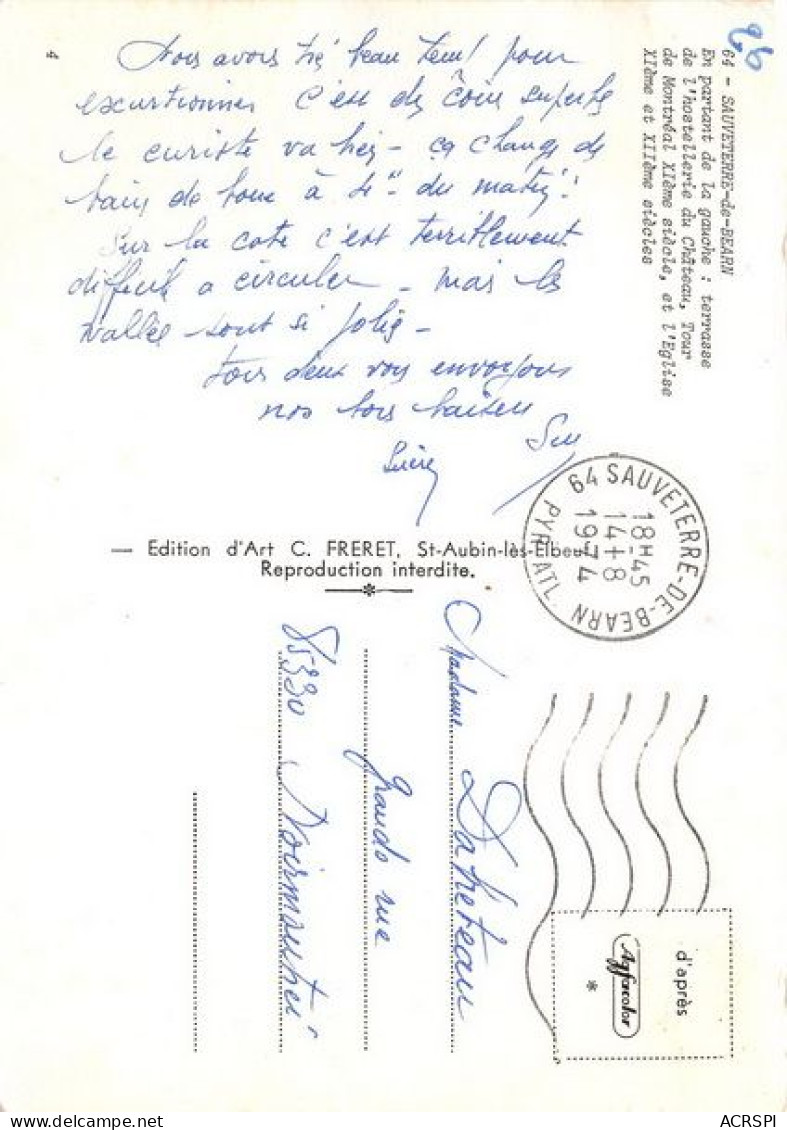 64 - SAUVETERRE-de-BEARN
En partant de la gauche : terrasse
de l'hostellerie du Château, Tour
de Montréal XIème siècle, et l'Eglise
XIème et XIIème siècles
26
4
avons beau pour
excurtionner c'est des coin superbe
le curiste va - ça change de
bain de boue à 4" du
Sur la cote c'est terriblement
difficile a circuler - mais les
vallée sont si jolie -
tous deux vous envoyons
nos bons baisers
— Edition d'Art C. FRERET, St-Aubin-lès-Elbeuf
Reproduction interdite.
64 SAUVETERRE-DE-BEARN
18H45
14-8
1974
PYR. ATL.
Madame Daheteau
grande rue
85330 Noirmoutier
d'après
Agfacolor
*
ACRSPI